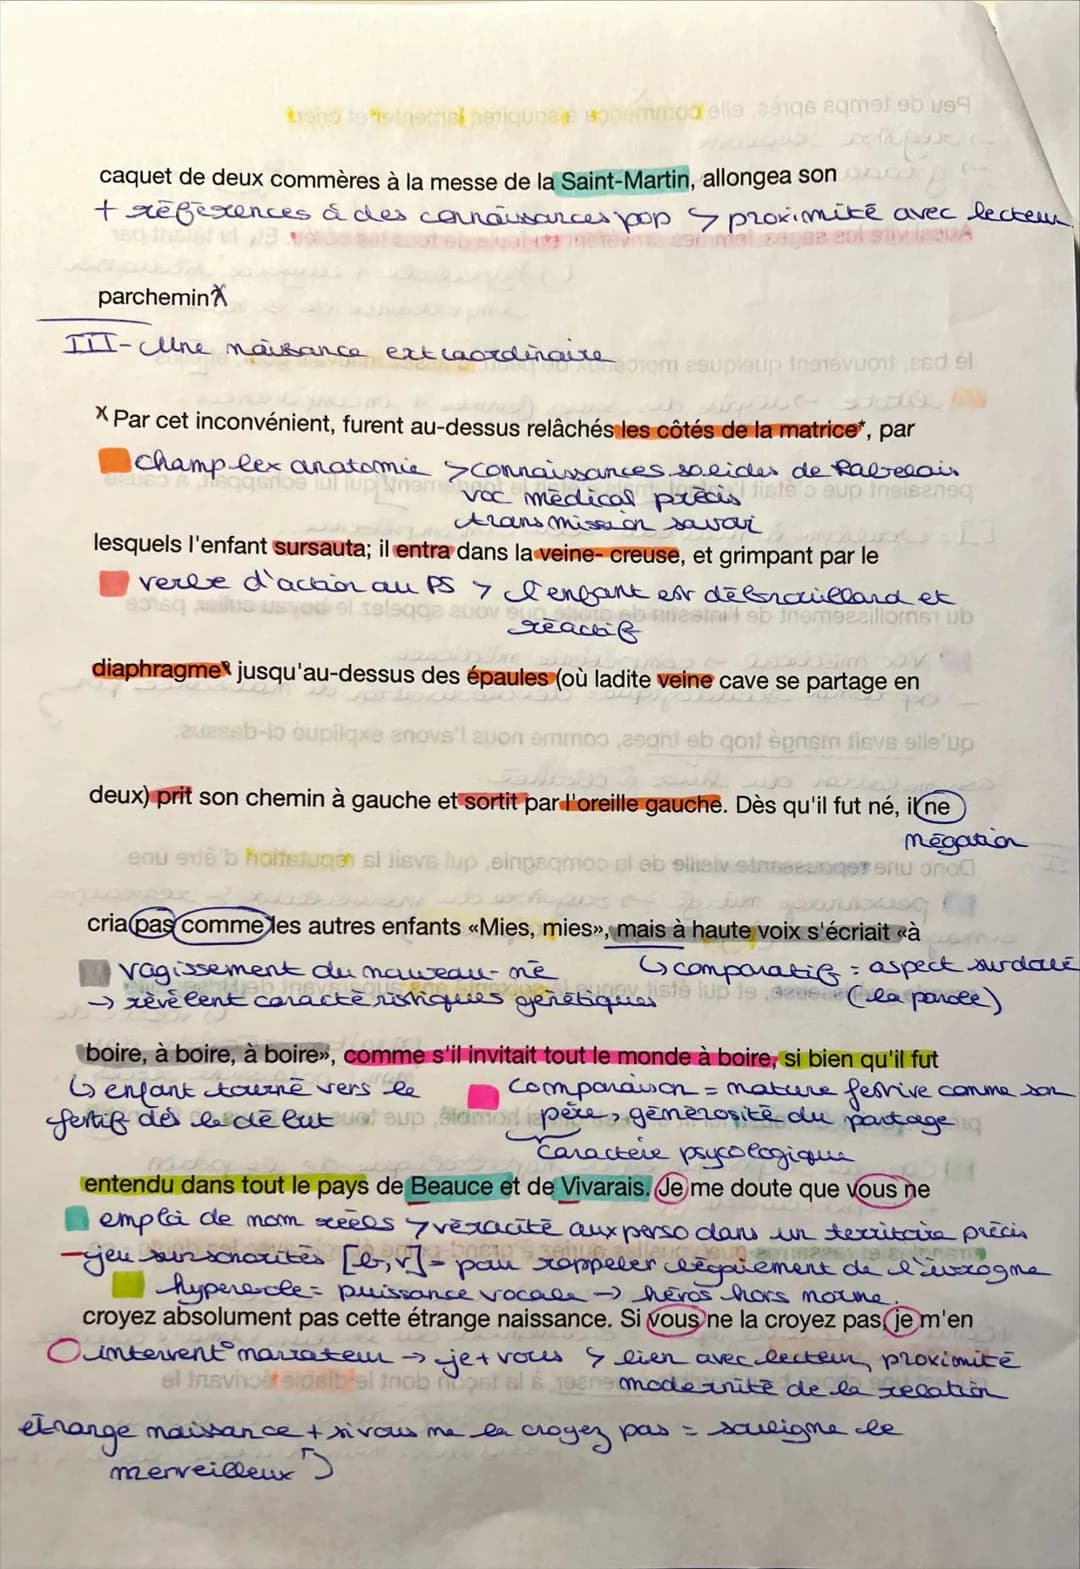 caquet de deux commères à la messe de la Saint-Martin, allongea son
+ références à des connaissances pop ↳ proximité avec lecteur
parchemin X
III- Une naissance extraordinaire
X Par cet inconvénient, furent au-dessus relâchés les côtés de la matrice*, par
champ lex anatomie > connaissances solides de Rabelais
voc médical précis
transmission savoir
lesquels l'enfant sursauta; il entra dans la veine- creuse, et grimpant par le
verbe d'action au PS > l'enfant est débrouillard et
réactif
diaphragme* jusqu'au-dessus des épaules (où ladite veine cave se partage en
deux) prit son chemin à gauche et sortit par l'oreille gauche. Dès qu'il fut né, il ne
négation
cria pas comme les autres enfants «Mies, mies», mais à haute voix s'écriait «à
vagissement du nouveau-né
↳ comparatif : aspect surdoué
→ révèlent caractéristiques génétiques
(la parole)
boire, à boire, à boire», comme s'il invitait tout le monde à boire, si bien qu'il fut
↳ enfant tourné vers le
festif dès le début
Comparaison = nature festive comme son
père, générosité du partage
Caractère psycologique
entendu dans tout le pays de Beauce et de Vivarais. Je me doute que vous ne
emploi de nom réels > véracité aux perso dans un territoire précis
- jeu sur sonorités [b,v] = pour rappeler bégaiement de l'ivrogne
hyperbole = puissance vocale → héros hors norme.
croyez absolument pas cette étrange naissance. Si vous ne la croyez pas, je m'en
intervent° narrateur → je + vous ↳ lien avec lecteur, proximité
modernité de la relation
étrange naissance + si vous ne la croyez pas = souligne le
merveilleux